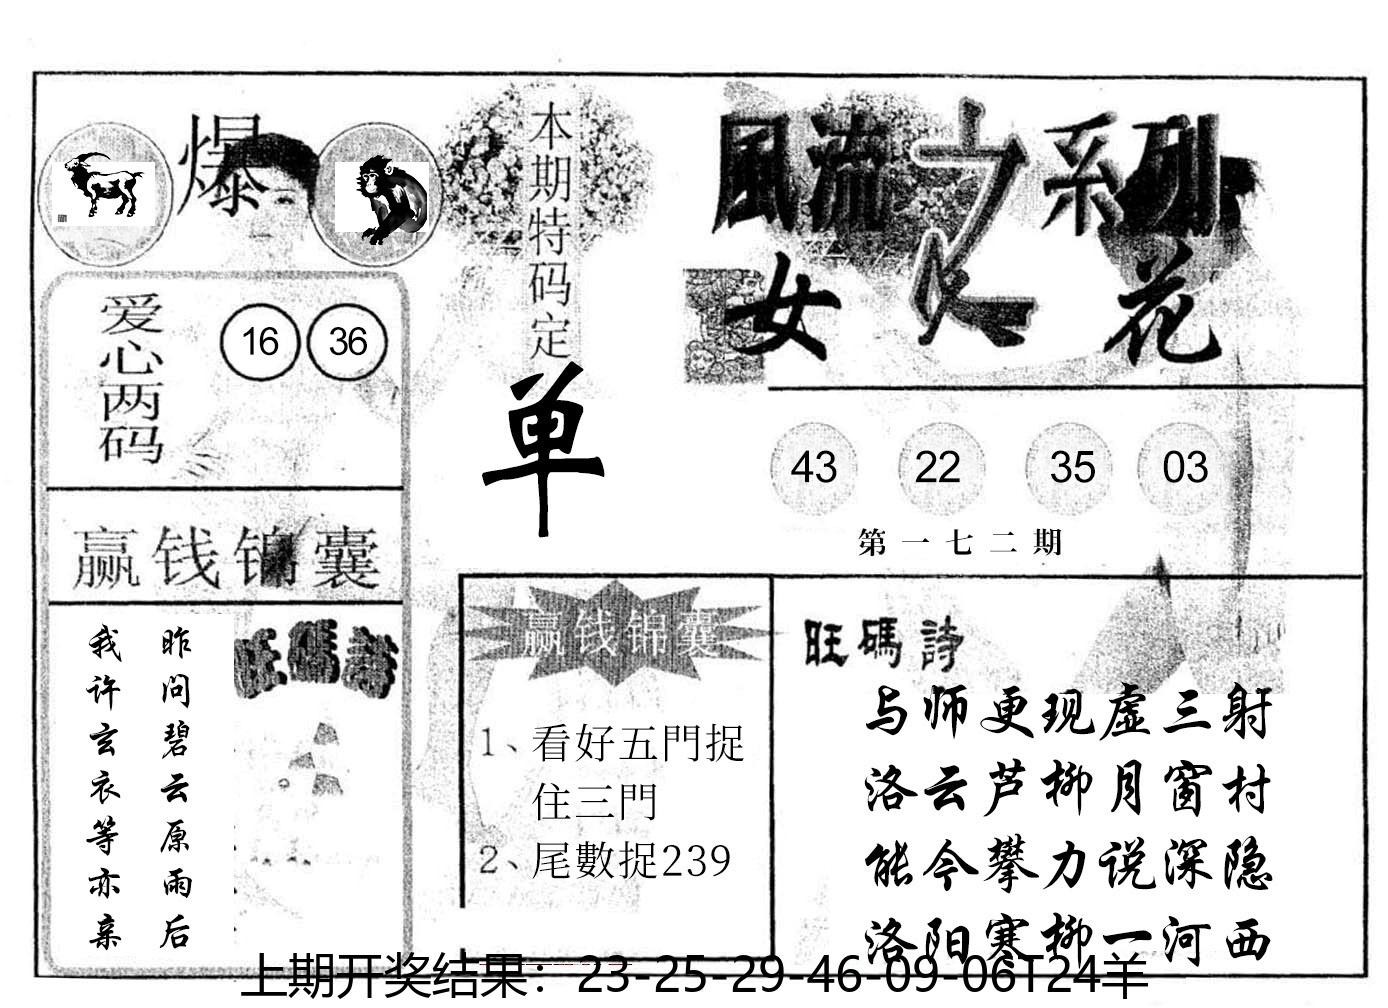 爆
爱心两码
16 36
赢钱锦囊
昨问碧云原雨后
我许玄衣等亦亲
旺碼詩
本期特码定
单
赢钱锦囊
1、看好五門捉
住三門
2、尾數捉239
風流之系列
女人花
43 22 35 03
第一七二期
旺碼詩
与师更现虚三射
洛云芦柳月窗村
能今攀力说深隐
洛阳寒柳一河西
上期开奖结果：23-25-29-46-09-06T24羊